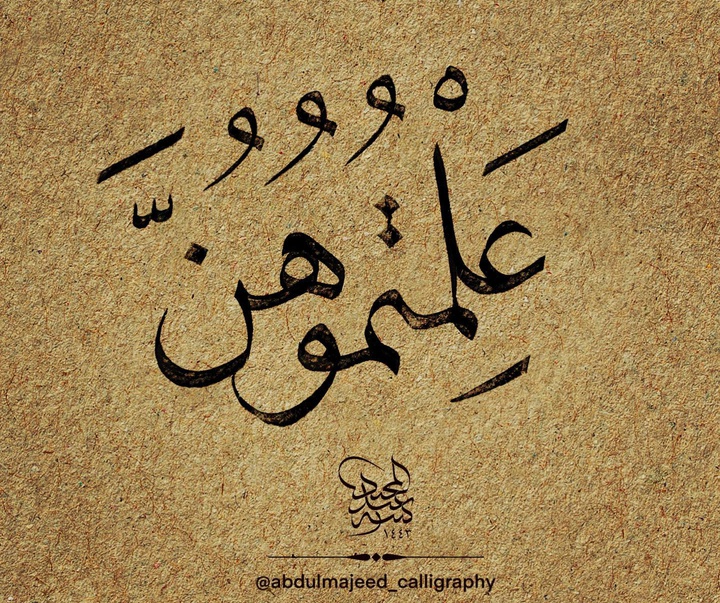 عَلِمْتُمُوهُنَّ
كتبه عبد المجيد
١٤٤٣
@abdulmajeed_calligraphy